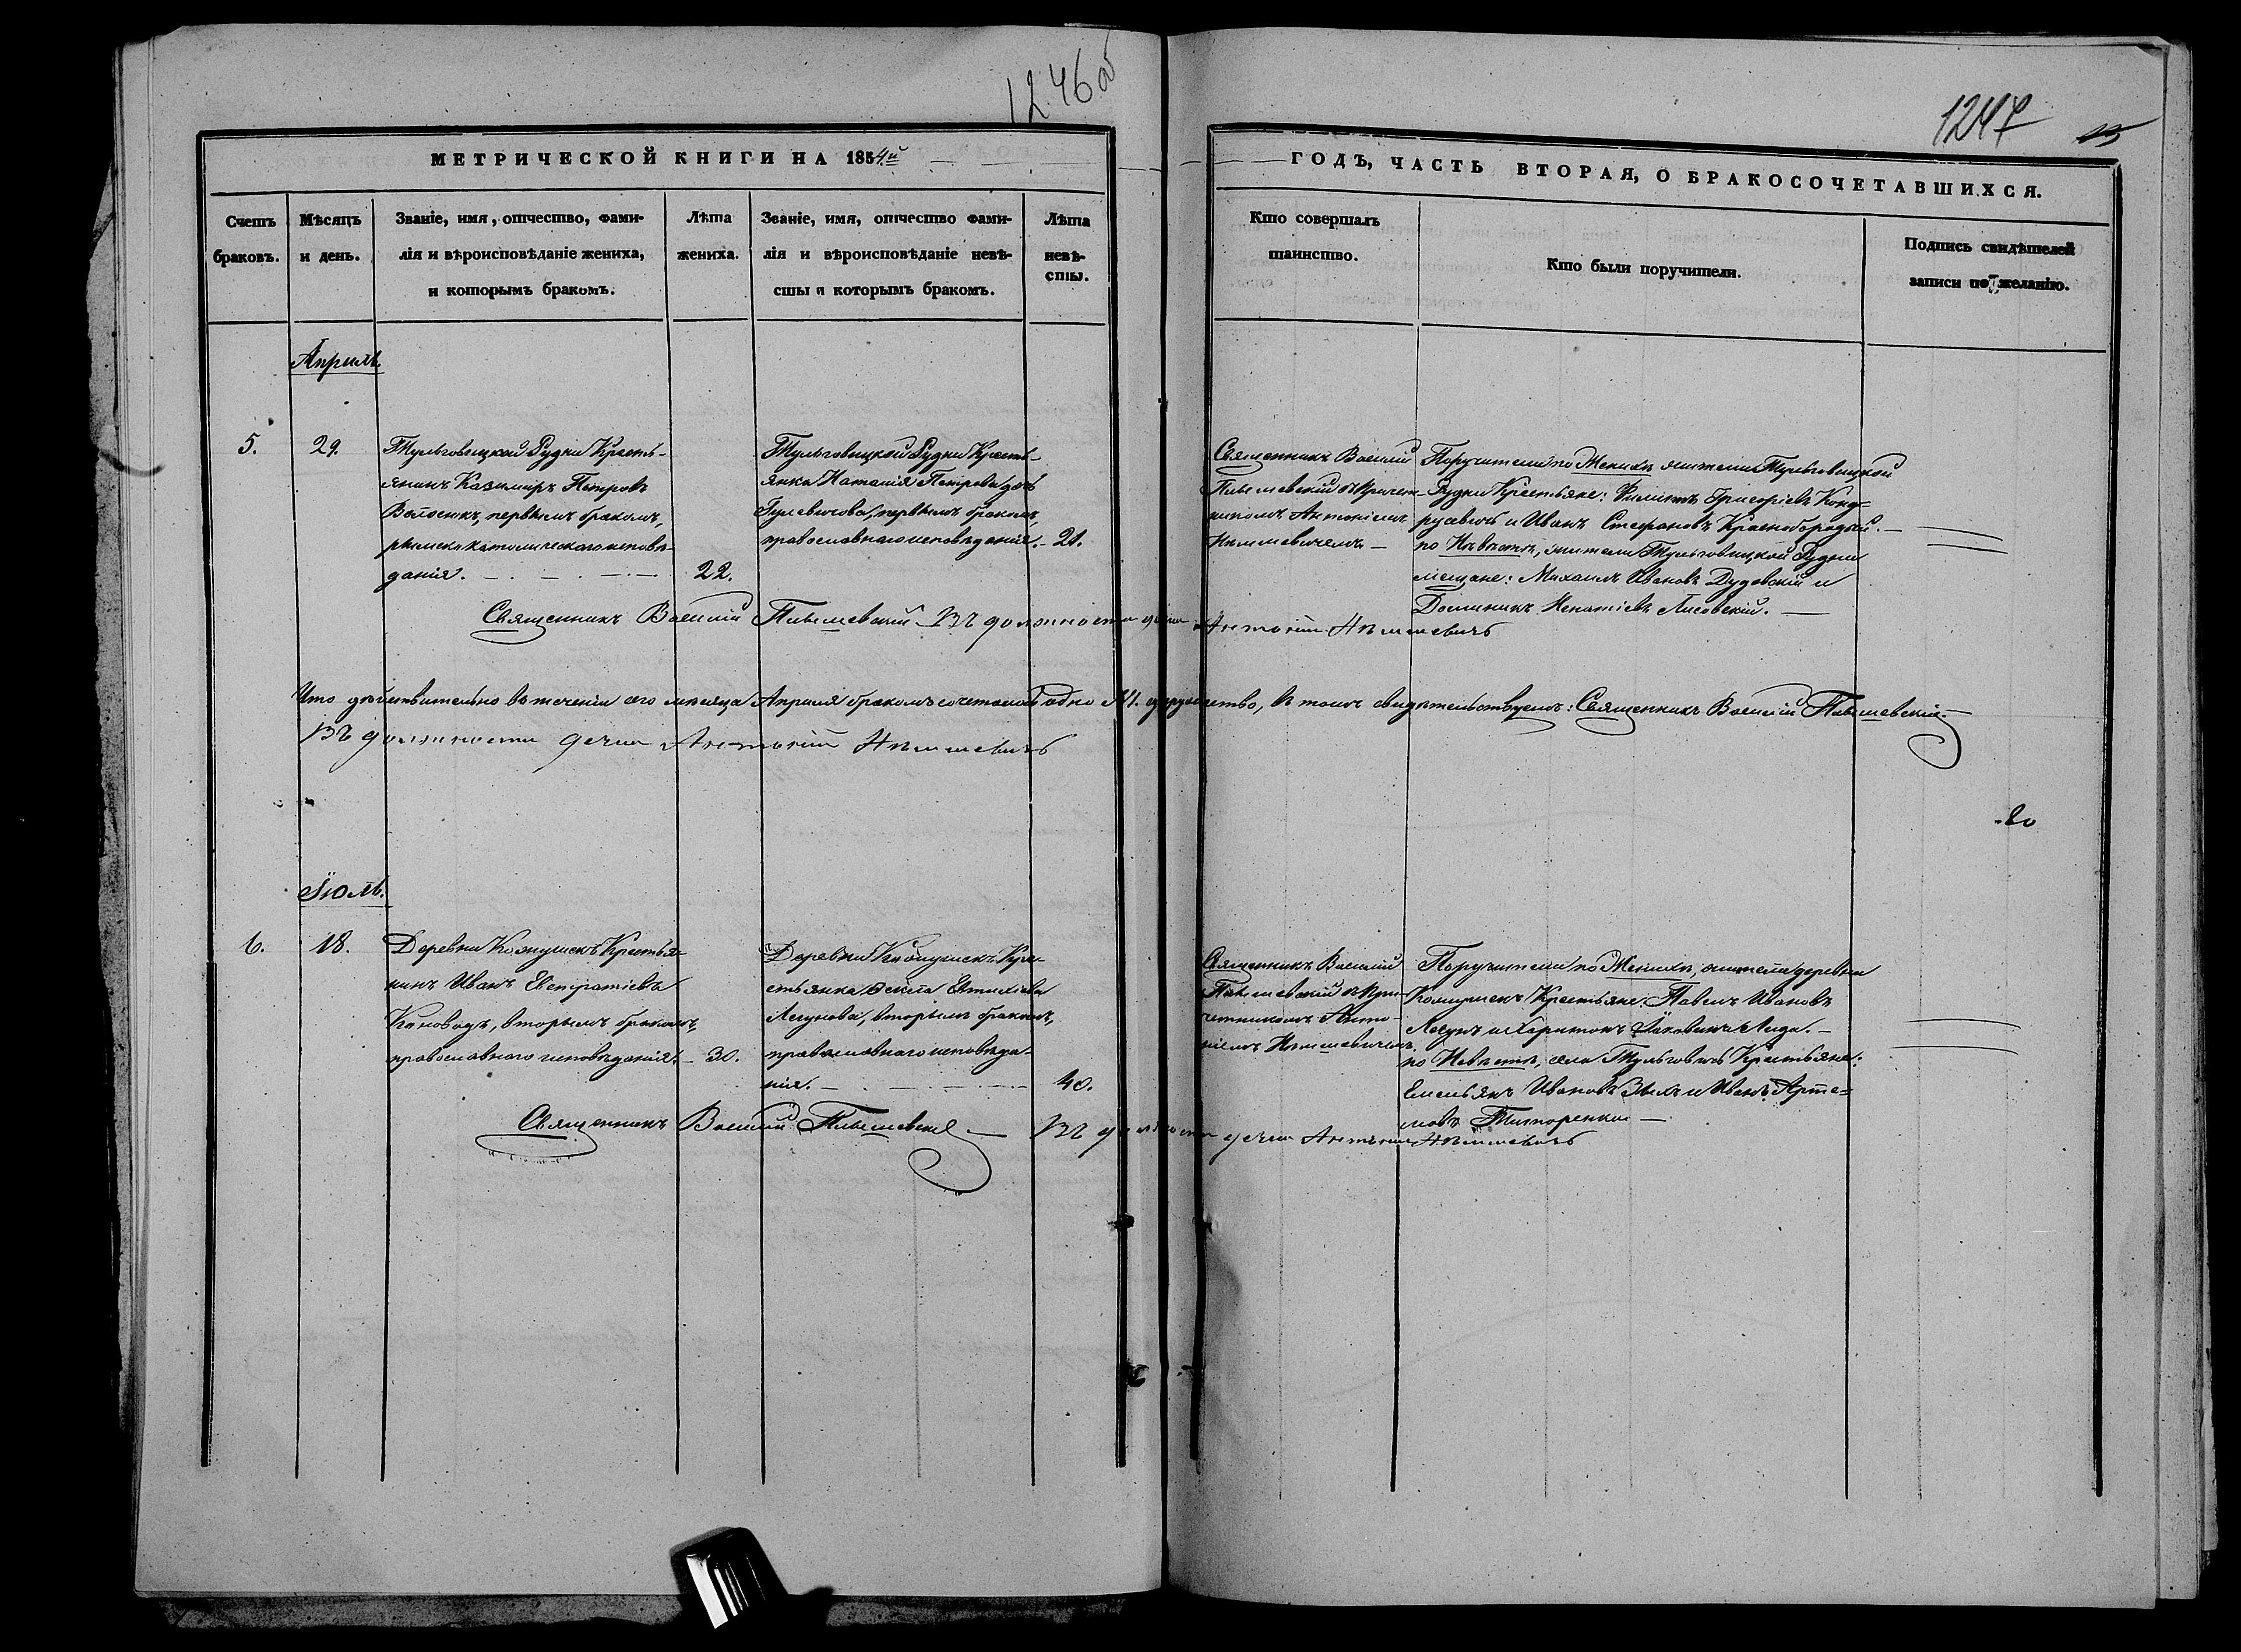 1246 об
1247
МЕТРИЧЕСКОЙ КНИГИ НА 1854й
ГОДЪ, ЧАСТЬ ВТОРАЯ, О БРАКОСОЧЕТАВШИХСЯ.
Счетъ браковъ.
Мѣсяцъ и день.
Званіе, имя, отчество, фами-
лія и вѣроисповѣданіе жениха,
и которымъ бракомъ.
Лѣта
жениха.
Званіе, имя, отчество фами-
лія и вѣроисповѣданіе невѣ-
сты и которымъ бракомъ.
Лѣта
невѣ-
сты.
Кто совершалъ
таинство.
Кто были поручители.
Подпись свидѣтелей
записи по желанію.
Апрѣль.
5.
29.
Тульговицкой Рудни Кресть-
янинъ Казимиръ Петровъ
первымъ бракомъ,
римско католическаго исповѣ-
данія.
22.
Тульговицкой Рудни Кресть-
янка Наталія Петрова дочь
Гулевичова, первымъ бракомъ,
православнаго исповѣданія.
21.
Священникъ Василій
съ причет-
никомъ Антоніемъ
Поручители по Женихѣ жители Тульговицкой
Рудни Крестьяне: Филиппъ Григоріевъ Конд-
русевичъ и Иванъ Стефановъ Краснобородый.
по Невѣстѣ, жители Тульговицкой Рудни
мещане: Михаилъ Ивановъ Дудовскій и
Доминикъ Игнатіевъ Лисовскій.
Священникъ Василій
Въ должности дьяка Антоній
Что дѣйствительно въ теченіи сего мѣсяца Апрѣля бракомъ сочетано одно №1. супружество, въ томъ свидѣтельствуемъ: Священникъ Василій
Въ должности дьяка Антоній
Іюль.
6.
18.
Деревни Кожушекъ Крестья-
нинъ Иванъ Евстратіевъ
Коновадъ, вторымъ бракомъ,
православнаго исповѣданія.
30.
Деревни Кожушекъ Кре-
стьянка Ѳекла Евтихіева
Лесунова, вторымъ бракомъ,
православнаго исповѣда-
нія.
40.
Священникъ Василій
съ при-
четникомъ Анто-
ніемъ
Поручители по Женихѣ, жители деревни
Кожушекъ Крестьяне: Павелъ Ивановъ
Лесунъ и Харитонъ Яковлевъ
по Невѣстѣ, села Тульговичъ Крестьяне:
Емельянъ Ивановъ и Иванъ Арте-
мовъ Титоренко
Священникъ Василій
Въ должности дьяка Антоній